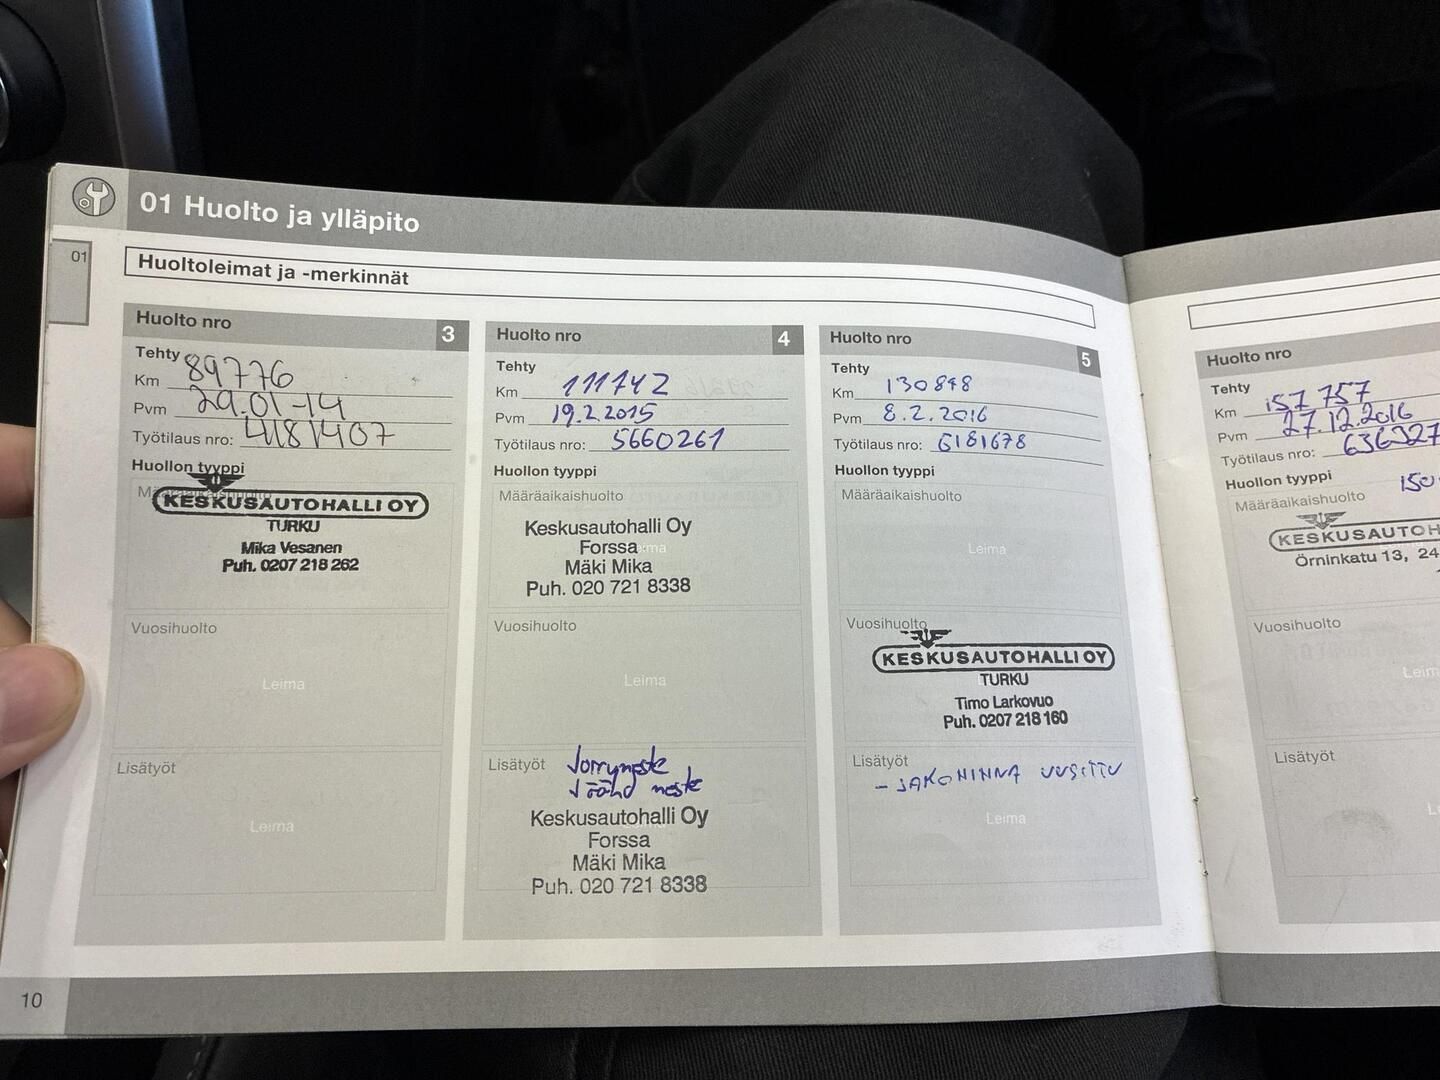 01 Huolto ja ylläpito
01
Huoltoleimat ja -merkinnät
Huolto nro 3
Tehty
Km 89776
Pvm 29.01-14
Työtilaus nro: 4181407
Huollon tyyppi
Määräaikaishuolto
KESKUSAUTOHALLI OY
TURKU
Mika Vesanen
Puh. 0207 218 262
Vuosihuolto
Leima
Lisätyöt
Leima
Huolto nro 4
Tehty
Km 111742
Pvm 19.2.2015
Työtilaus nro: 5660261
Huollon tyyppi
Määräaikaishuolto
Keskusautohalli Oy
Forssa
Mäki Mika
Puh. 020 721 8338
Vuosihuolto
Leima
Lisätyöt
Jarruneste
Jäähd neste
Keskusautohalli Oy
Forssa
Mäki Mika
Puh. 020 721 8338
Huolto nro 5
Tehty
Km 130848
Pvm 8.2.2016
Työtilaus nro: 6181678
Huollon tyyppi
Määräaikaishuolto
Leima
Vuosihuolto
KESKUSAUTOHALLI OY
TURKU
Timo Larkovuo
Puh. 0207 218 160
Lisätyöt
- JAKOHIHNA UUSITTU
Leima
Huolto nro
Tehty
Km 157 757
Pvm 27.12.2016
Työtilaus nro: 636327
Huollon tyyppi
Määräaikaishuolto
150
KESKUSAUTOH
Örninkatu 13, 24
Vuosihuolto
Leim
Lisätyöt
10